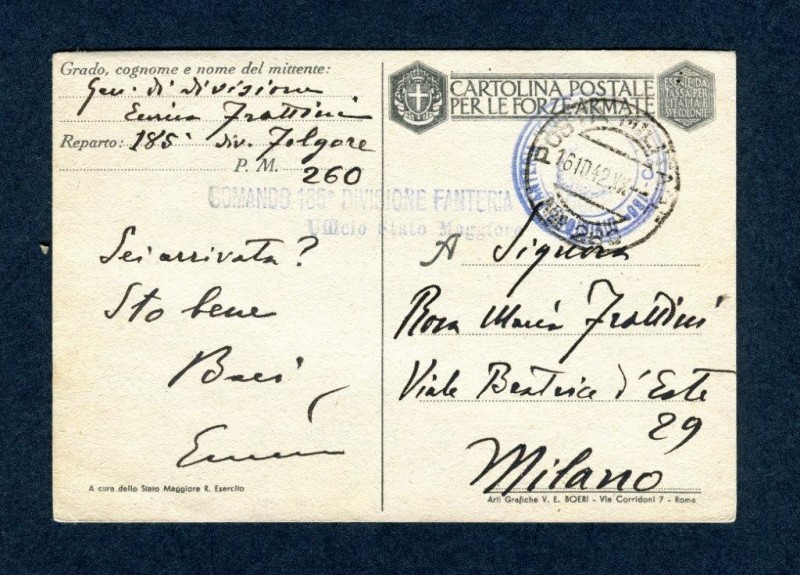 Grado, cognome e nome del mittente:
Gen. di divisione
Enrico Frattini
Reparto: 185ª Div. Folgore
P. M. 260
COMANDO 185ª DIVISIONE FANTERIA
Ufficio Stato Maggiore
Sei arrivata?
Sto bene
Baci
Enrico
A cura dello Stato Maggiore R. Esercito
CARTOLINA POSTALE
PER LE FORZE ARMATE
ESENTE DA
TASSA PER
L'ITALIA E
SUE COLONIE
POSTA MILITARE
16.10.42.XX
A Signora
Rosa Maria Frattini
Viale Beatrice d'Este
29
Milano
Arti Grafiche V. E. BOERI - Via Corridoni 7 - Roma